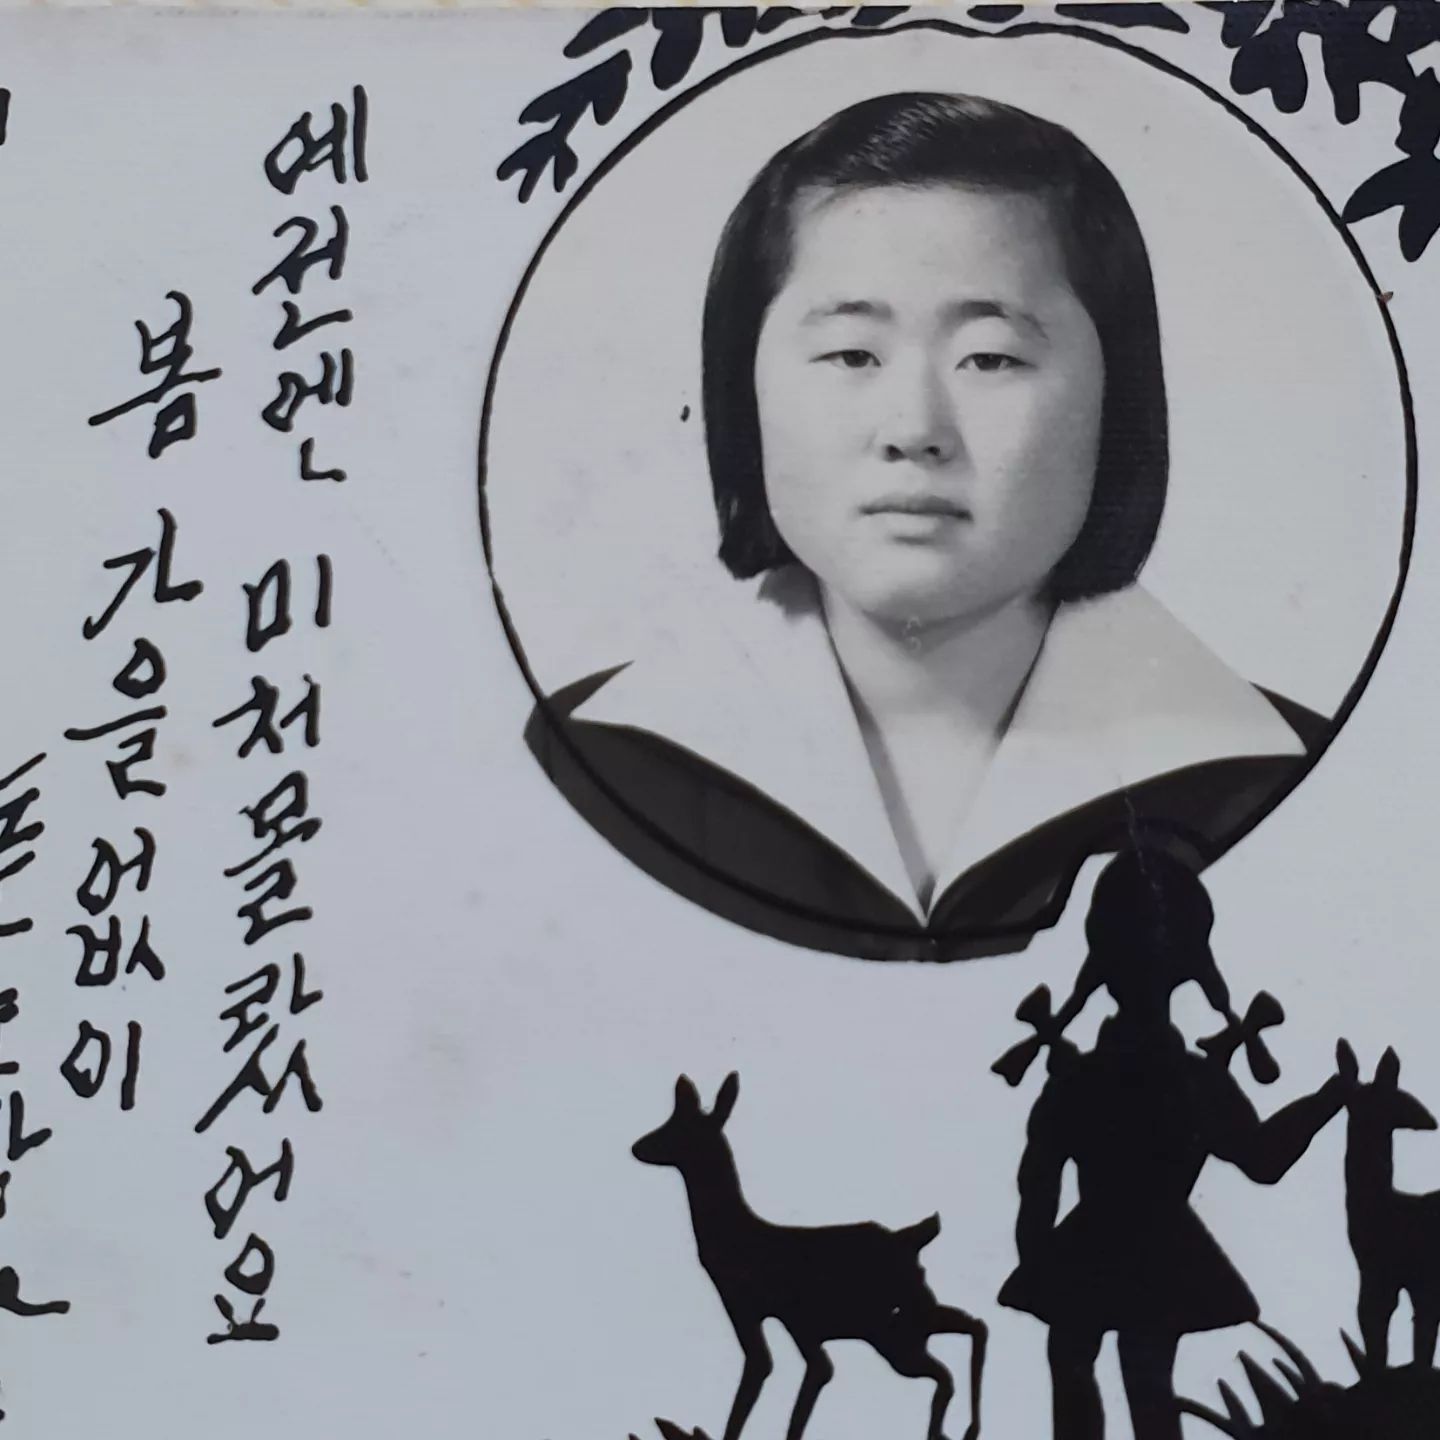 예전엔 미처 몰랐어요
봄 가을 없이